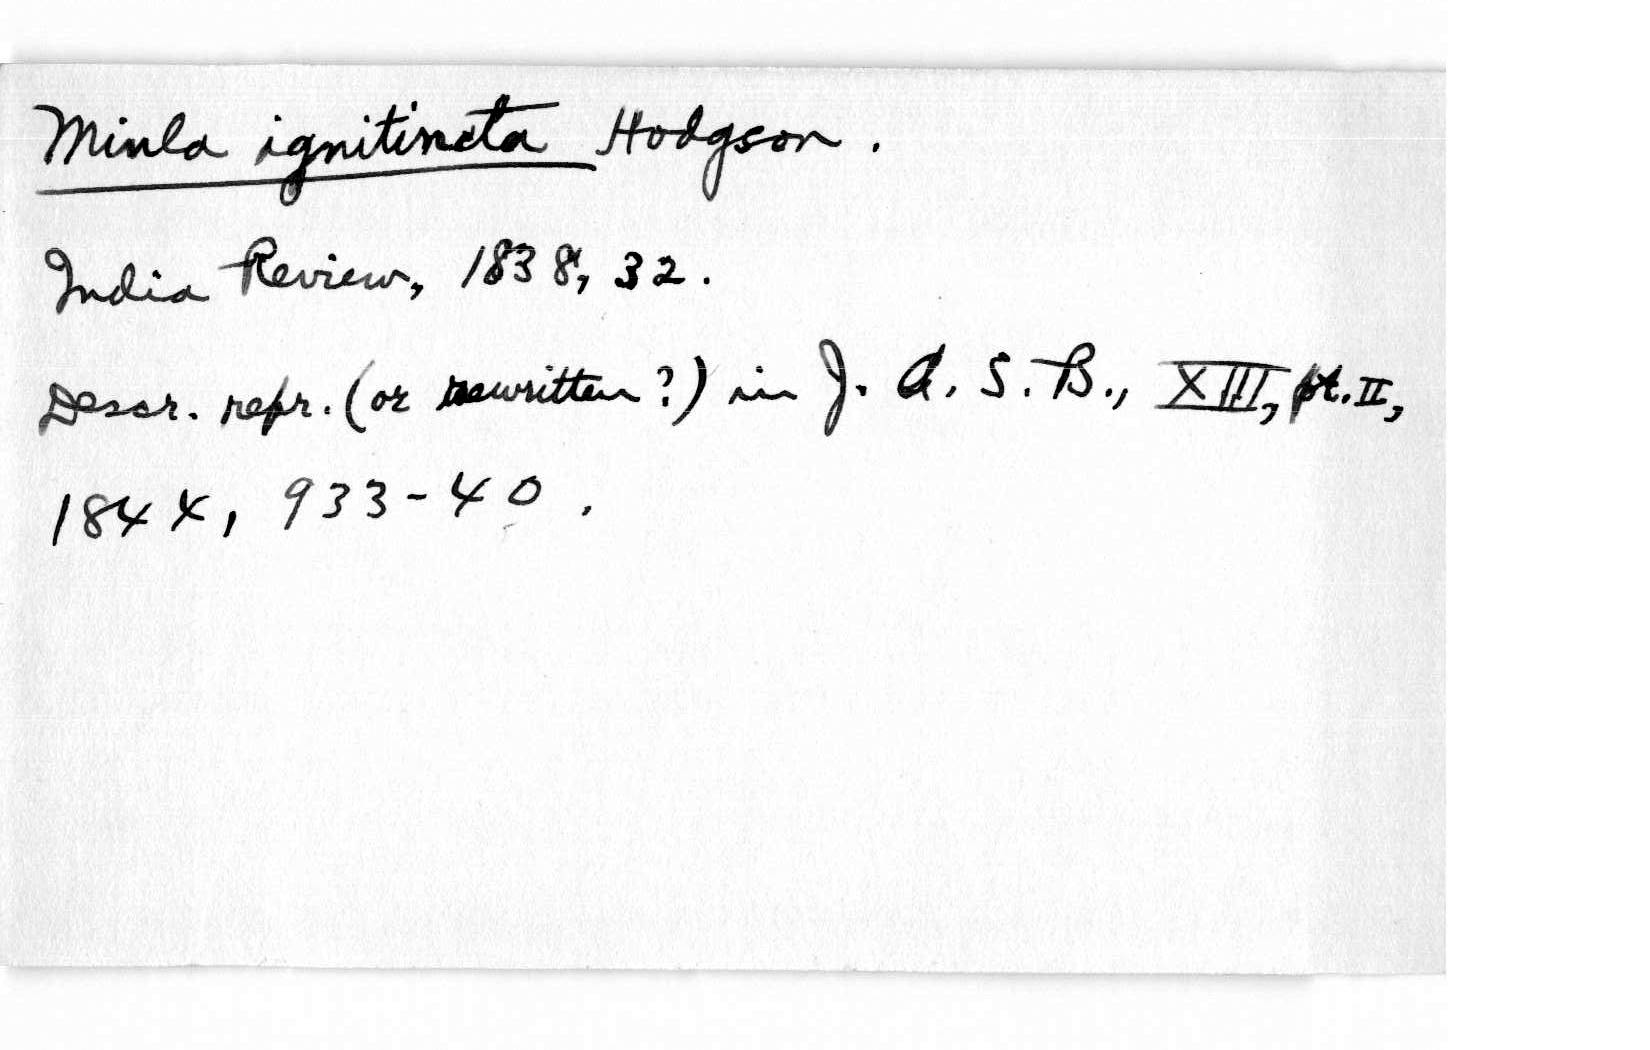 Minla ignitincta Hodgson.
India Review, 1838, 32.
Descr. repr. (or rewritten?) in J. A. S. B., XIII, pt. II,
1844, 933-40.